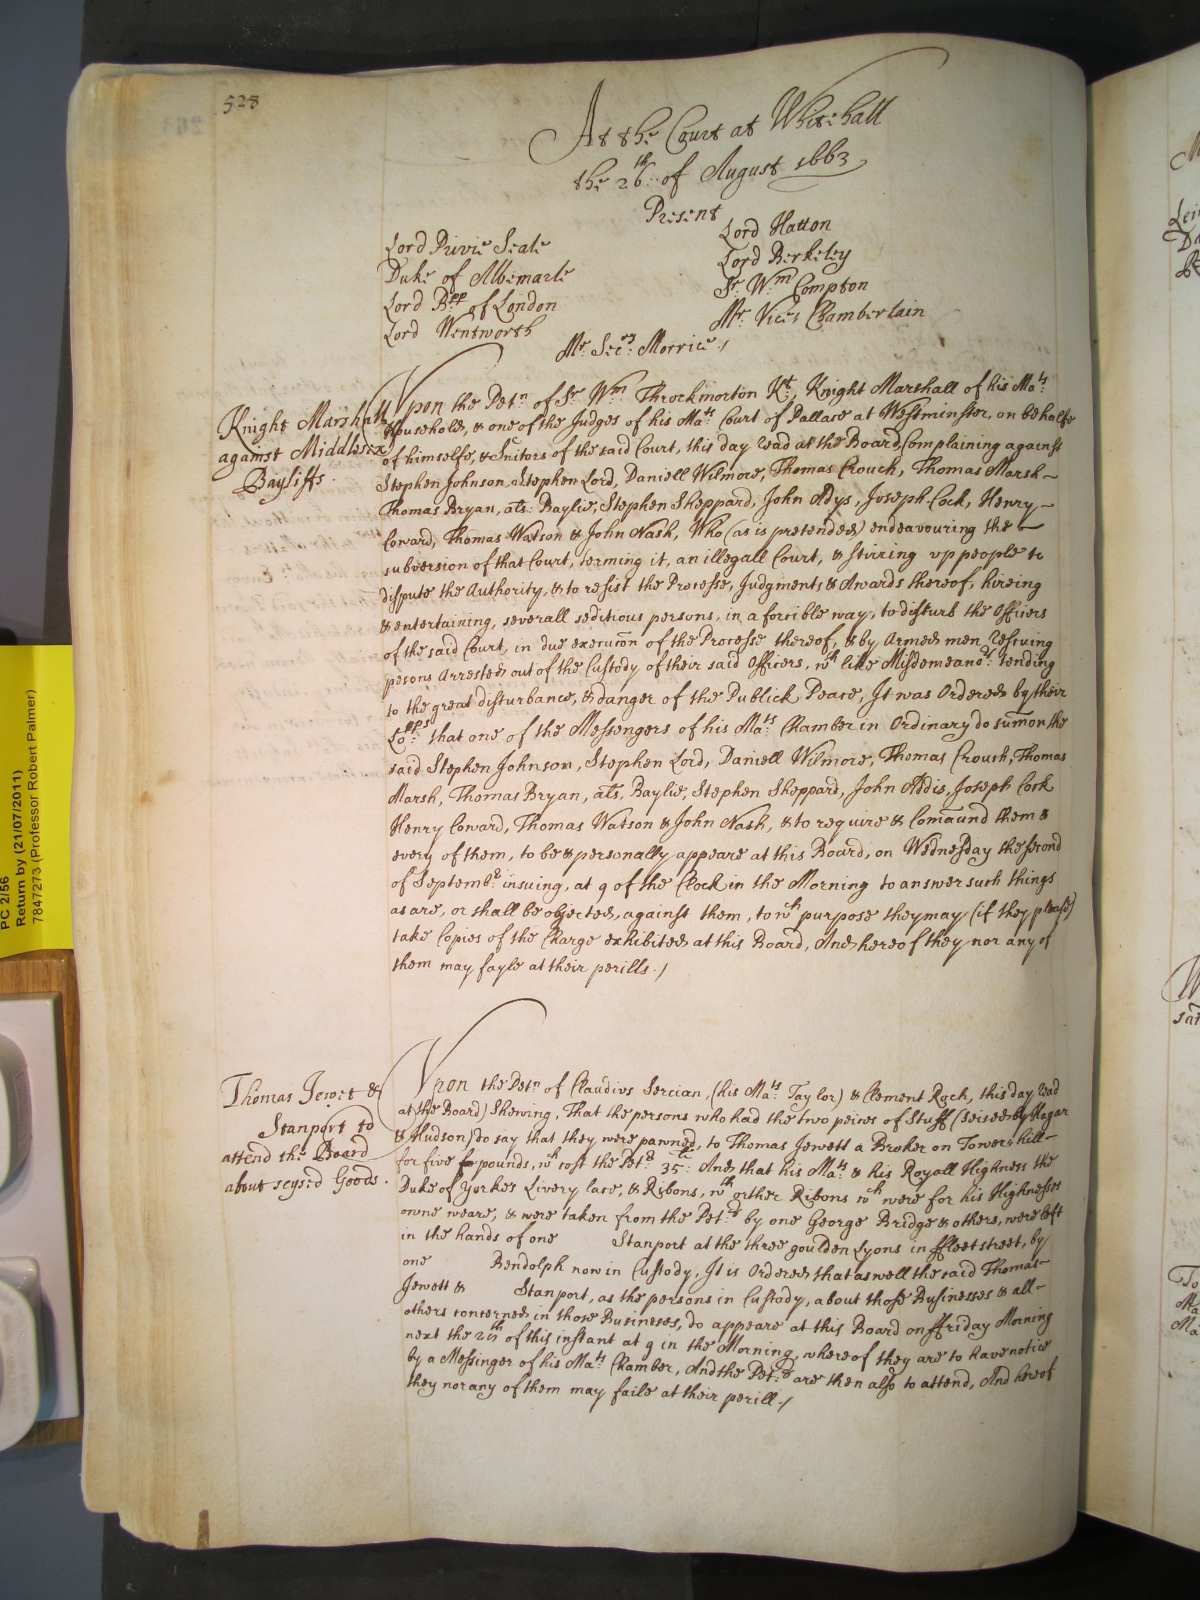 528
At the Court at Whitehall
the 26th of August 1663
Present
Lord Privie Seale
Duke of Albemarle
Lord Bpp of London
Lord Wentworth
Lord Hatton
Lord Berkeley
Sr Wm Compton
Mr Vice Chamberlain
Mr Secry Morrice /
Knight Marshall
against Middlesex
Bayliffs
Vpon the Petn of Sr Wm Throckmorton Kt, Knight Marshall of his Mats
Household, & one of the Judges of his Mats Court of Pallace at Westminster, on behalfe
of himselfe, & Suitors of the said Court, this day read at the Board, Complaining against
Stephen Johnson, Stephen Lord, Daniell Wilmore, Thomas Crouch, Thomas Marsh
Thomas Bryan, als Baylie, Stephen Sheppard, John Adys, Joseph Cock, Henry
Coward, Thomas Watson & John Nash, Who (as is pretended) endeavouring the
subversion of that Court, terming it, an illegall Court, & stiring vp people to
dispute the Authority, & to resist the Processe, Judgments & Awards thereof, hireing
& entertaining, severall seditious persons, in a forcible way, to disturb the Officers
of the said Court, in due execucon of the Processe thereof, & by Armed men rescuing
persons Arrested out of the Custody of their said Officers, wth like Misdemeanors tending
to the great disturbance, & danger of the Publick Peace, It was Ordered by their
Lopps that one of the Messengers of his Mats Chamber in Ordinary do sumon the
said Stephen Johnson, Stephen Lord, Daniell Wilmore, Thomas Crouch, Thomas
Marsh, Thomas Bryan, als, Baylie, Stephen Sheppard, John Addis, Joseph Cock
Henry Coward, Thomas Watson & John Nash, & to require & Comaund them &
every of them, to be & personally appeare at this Board, on Wednesday the second
of Septembr insuing, at 9 of the Clock in the Morning to answer such things
as are, or shall be objected, against them, to wch purpose they may (if they please)
take Copies of the Charge exhibited at this Board, And hereof they nor any of
them may fayle at their perills /
Thomas Jewet &
Stanport to
attend the Board
about seysed Goods.
Vpon the Petn of Claudius Sercian, (his Mats Taylor) & Clement Rock, this day read
at the Board) Shewing, That the persons who had the two peices of Stuff (seised by Hagar
& Hudson) do say that they were pawned, to Thomas Jewett a Broker on Tower hill
for five pounds, wch cost the Petrs 35li And that his Mats & his Royall Highness the
Duke of Yorkes Livery lace, & Ribons, wth orther Ribons wch were for his Highnesses
owne weare, & were taken from the Petrs by one George Bridge & others, were left
in the hands of one Stanport at the three goulden Lyons in ffleetstreet, by
one Rendolph now in Custody, It is Ordered that as well the said Thomas
Jewett & Stanport, as the persons in Custody, about those Businesses & all
others concerned in those Busineses, do appeare at this Board on ffriday Morning
next the 28th of this instant at 9 in the Morning, whereof they are to have notice
by a Messinger of his Mats Chamber, And the Petrs are then also to attend, And hereof
they nor any of them may faile at their perill /
PC 2/56
Return by (21/07/2011)
7847273 (Professor Robert Palmer)